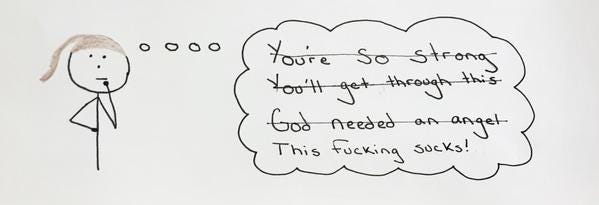 You're so strong
You'll get through this
God needed an angel
This fucking sucks!